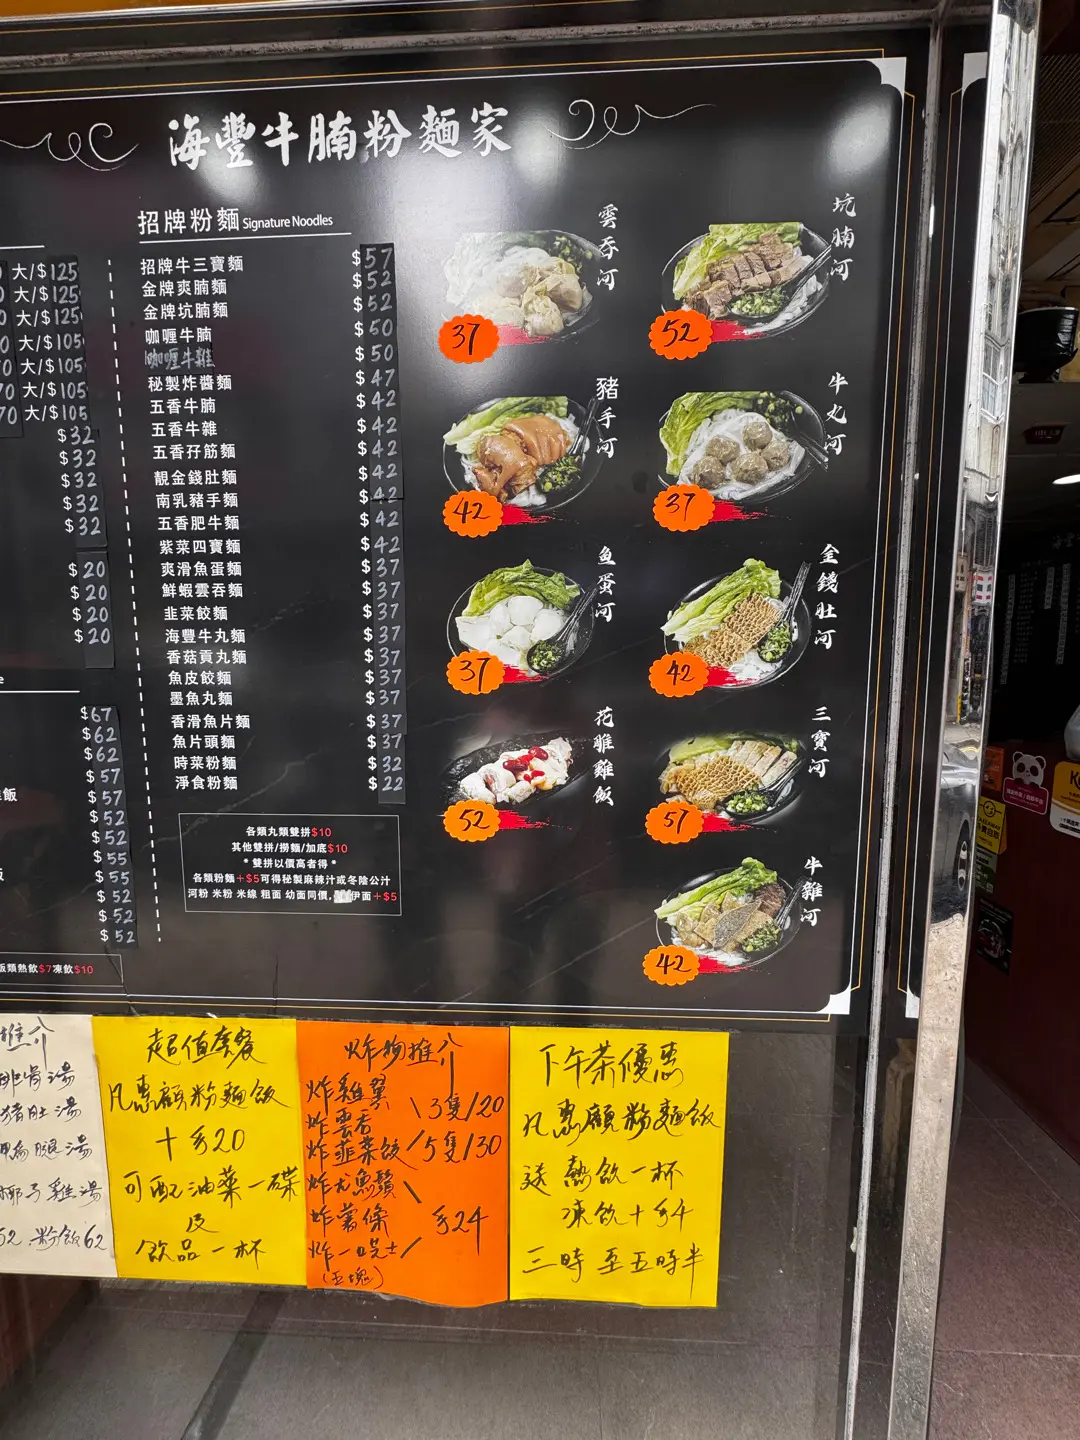 海豐牛腩粉麵家
大/$125
大/$125
大/$125
大/$105
大/$105
大/$105
70 大/$105
$32
$32
$32
$32
$32
$20
$20
$20
$20
$67
$62
$62
$57
飯 $57
$52
$52
$55
$55
$52
$52
$52
飯類熱飲$7凍飲$10
招牌粉麵 Signature Noodles
招牌牛三寶麵 $57
金牌爽腩麵 $52
金牌坑腩麵 $52
咖喱牛腩 $50
咖喱牛雜 $50
秘製炸醬麵 $47
五香牛腩 $42
五香牛雜 $42
五香孖筋麵 $42
靚金錢肚麵 $42
南乳豬手麵 $42
五香肥牛麵 $42
紫菜四寶麵 $42
爽滑魚蛋麵 $37
鮮蝦雲吞麵 $37
韭菜餃麵 $37
海豐牛丸麵 $37
香菇貢丸麵 $37
魚皮餃麵 $37
墨魚丸麵 $37
香滑魚片麵 $37
魚片頭麵 $37
時菜粉麵 $32
淨食粉麵 $22
各類丸類雙拼$10
其他雙拼/撈麵/加底$10
* 雙拼以價高者得 *
各類粉麵+$5可得秘製麻辣汁或冬陰公汁
河粉 米粉 米線 粗面 幼面同價, 伊面+$5
雲吞河
37
坑腩河
52
豬手河
42
牛丸河
37
魚蛋河
37
金錢肚河
42
花雕雞飯
52
三寶河
57
牛雜河
42
推介
排骨湯
豬肚湯
鴨腿湯
椰子雞湯
52 粉飯62
超值套餐
凡惠顧粉麵飯
十$20
可配油菜一碟
及
飲品一杯
炸物推介
炸雞翼
炸雲吞
炸韮菜餃
3隻/20
5隻/30
炸尤魚鬚
炸薯條
$24
(五塊)
下午茶優惠
凡惠顧粉麵飯
送熱飲一杯
凍飲十$4
三時至五時半